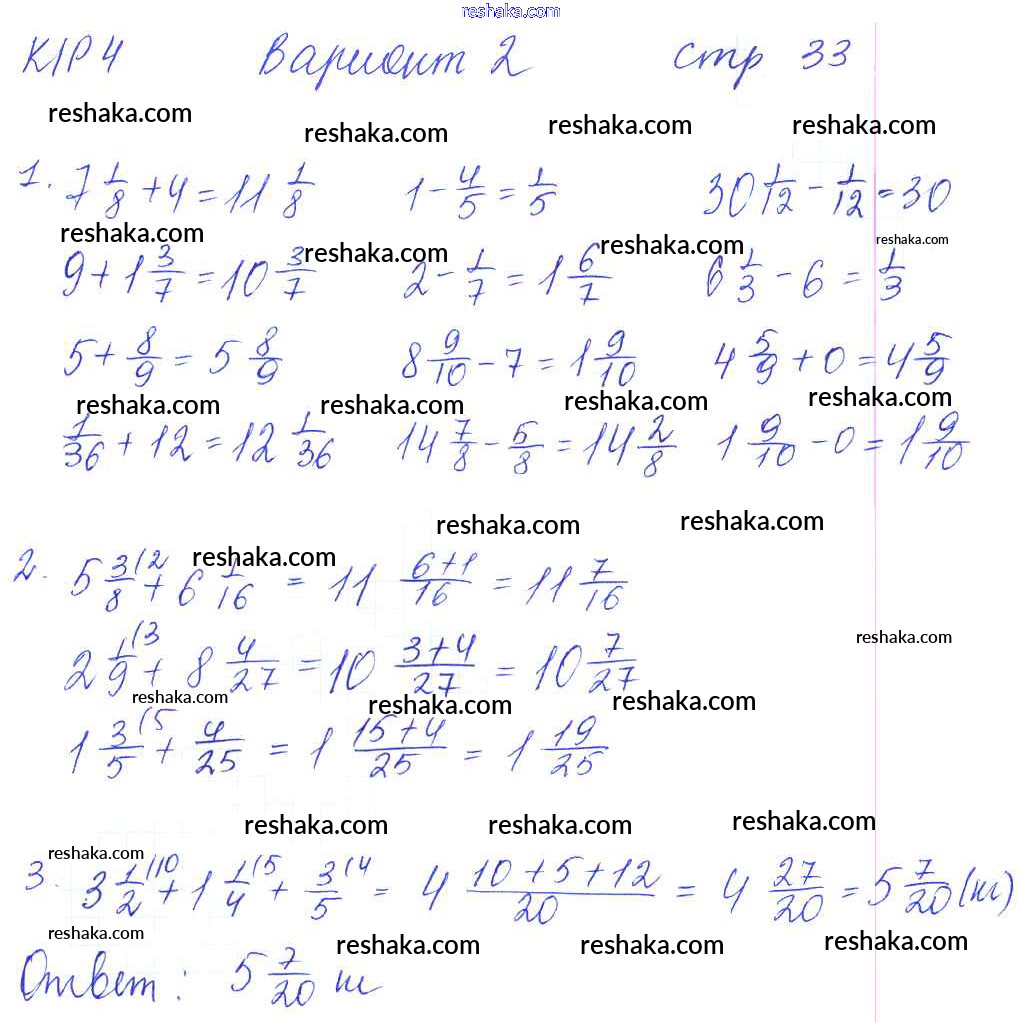 reshaka.com
К/Р 4 Вариант 2 стр 33
reshaka.com reshaka.com reshaka.com reshaka.com
1. 7 1/8 + 4 = 11 1/8 1 - 4/5 = 1/5 30 1/12 - 1/12 = 30
reshaka.com reshaka.com reshaka.com reshaka.com
9 + 1 3/7 = 10 3/7 2 - 1/7 = 1 6/7 6 1/3 - 6 = 1/3
5 + 8/9 = 5 8/9 8 9/10 - 7 = 1 9/10 4 5/9 + 0 = 4 5/9
reshaka.com reshaka.com reshaka.com reshaka.com
1/36 + 12 = 12 1/36 14 7/8 - 5/8 = 14 2/8 1 9/10 - 0 = 1 9/10
reshaka.com reshaka.com
reshaka.com
2. 5 3/8 (2 + 6 1/16 = 11 (6+1)/16 = 11 7/16
reshaka.com
2 1/9 (3 + 8 4/27 = 10 (3+4)/27 = 10 7/27
reshaka.com reshaka.com reshaka.com
1 3/5 (5 + 4/25 = 1 (15+4)/25 = 1 19/25
reshaka.com reshaka.com reshaka.com
reshaka.com
3. 3 1/2 (10 + 1 1/4 (5 + 3/5 (4 = 4 (10+5+12)/20 = 4 27/20 = 5 7/20 (м)
reshaka.com reshaka.com reshaka.com reshaka.com
Ответ: 5 7/20 м